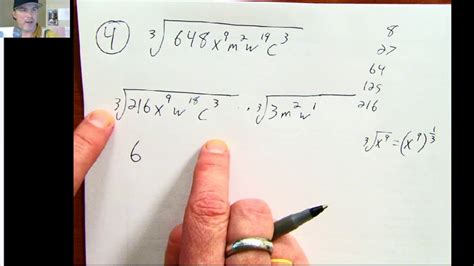 ④ ∛648x⁹m²w¹⁹c³
8
27
64
125
216
∛216x⁹w¹⁸c³ · ∛3m²w¹
∛x⁹ = (x⁹)^(1/3)
6